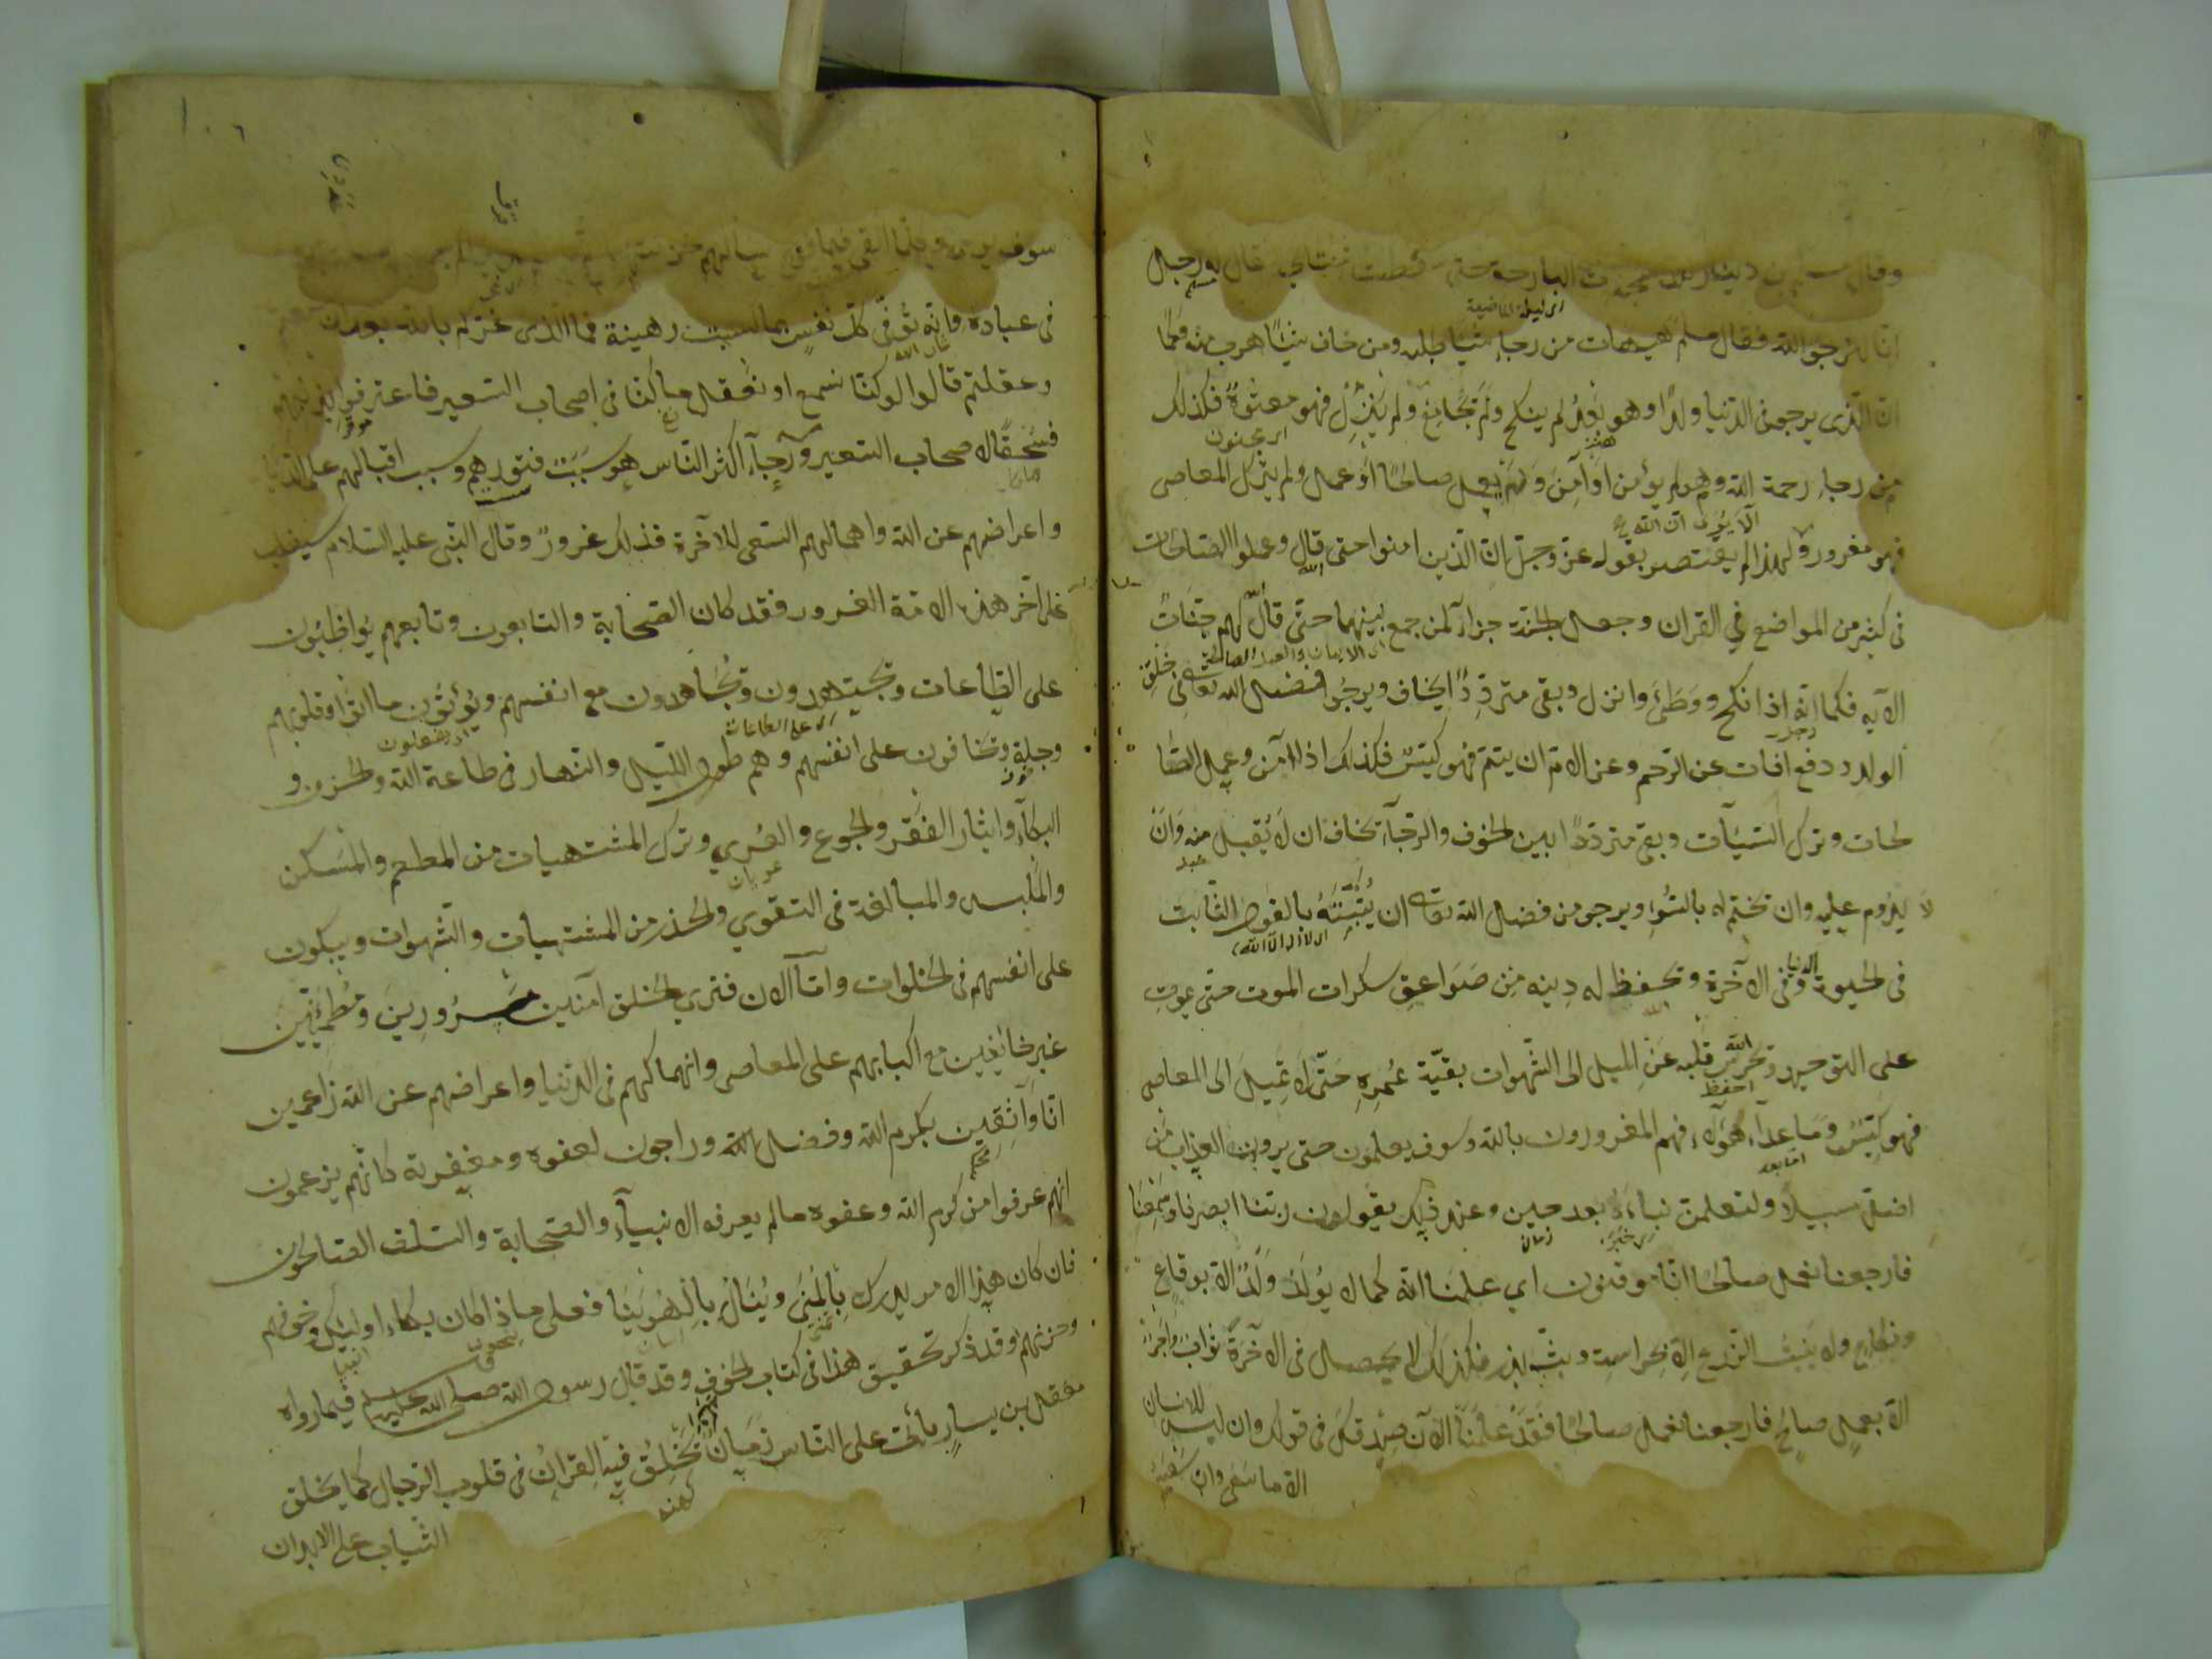 وقال دينار البارحة حتى سقطت ثنيتاي فقال له رجل
اى ليلة الماضية
انا لنرجو الله فقال مسلم هيهات من رجا شيئا طلبه ومن خاف شيئا هرب منه فكما
ان الذى يرجو فى الدنيا ولدا وهو بعد لم ينكح ولم يجامع ولم ينزل فهو معتوه فكذلك
اى مجنون
من رجا رحمة الله وهو لم يؤمن او آمن ولم يعمل صالحا او عمل ولم يترك المعاصى
فهو مغرور ولهذا لم يقتصر بقوله عز وجل ان الذين امنوا حتى قال وعملوا الصالحات
الا يرى ان الله
فى كثير من المواضع في القران وجعل الجنة جزاء لمن جمع بينهما حتى قال الله لهم جنات
اى الايمان والعمل الصالح
الآيه فكما انه اذا نكح ووطئ وانزل وبقى مترددا يخاف ويرجو فضل الله تعالى فى خلق
رجل
الولد ودفع افات عن الرحم وعن الام ان يتم فهو كيس فكذلك اذا آمن وعمل الصا
لحات وترك السيآت وبقى مترددا بين الخوف والرجآء يخاف ان لا يقبل منه وان
لا يدوم عليه وان يختم له بالسوء ويرجى من فضل الله تعالى ان يثبته بالقول الثابت
اى لا اله الا الله
فى الحيوة الدنيا وفى الآخرة ويحفظ له دينه من صواعق سكرات الموت حتى يموت
على التوحيد ويحرس الله قلبه عن الميل الى الشهوات بقية عمره حتى لا يميل الى المعاصى
احفظ
فهو كيس وما عدا هؤلآء فهم المغرورون بالله وسوف يعلمون حتى يرون العذاب من
اما بعد
اضل سبيلا ولتعلمن نباءه بعد حين وعند ذلك يقولون ربنا ابصرنا وسمعنا
اى خبره زمان
فارجعنا نعمل صالحا انا موقنون اي علمنا انه كما لا يولد ولد الا بوقاع
ونكاح ولا ينبت الزرع الا بحراسة وبث بذر فكذلك لا يحصل فى الآخرة ثواب واجر
الا بعمل صالح فارجعنا نعمل صالحا فقد علمنا الآن صدقك فى قولك وان ليس للانسان
الا ما سعى وان سعيه
سوف يرى
فى عباده وانه توفى كل نفس بما كسبت رهينة فما الذى غركم بالله بعد ان
وعقلتم قالوا لو كنا نسمع او نعقل ما كنا فى اصحاب السعير فاعترفوا بذنبهم
فسحقا لاصحاب السعير ورجآء اكثر الناس هو سبب فتورهم وسبب اقبالهم على الدنيا
واعراضهم عن الله واهمالهم السعى للآخرة فذلك غرور وقال النبى عليه السلام سيغلب
على آخر هذه الامة الغرور فقد كان الصحابة والتابعون وتابعهم يواظبون
على الطاعات ويجتهدون ويجاهدون مع انفسهم ويؤتون ما اتوا وقلوبهم
اى على الطاعات اى يفعلون
وجلة ويخافون على انفسهم وهم طول الليل والنهار فى طاعة الله والحزن و
البكآء وايثار الفقر والجوع والعري وترك المشتهيات من المطعم والمسكن
عريان
والملبس والمبالغة فى التقوي والحذر من المشتهيات والشهوات ويبكون
على انفسهم فى الخلوات واما الآن فتري الخلق آمنين مسرورين ومطمئنين
غير خايفين مع اكبابهم على المعاصى وانهماكهم فى الدنيا واعراضهم عن الله زاعمين
انا واثقين بكرم الله وفضل الله وراجون لعفوه ومغفرته كانهم يزعمون
انهم عرفوا من كرم الله وعفوه ما لم يعرفه الانبيآء والصحابة والسلف الصالحون
فان كان هذا الامر يدرك بالمنى وينال بالهوينا فعلى ماذا كان بكاء اولئك وخوفهم
وحزنهم وقد ذكر تحقيق هذا فى كتاب الخوف وقد قال رسول الله صلى الله عليه وسلم فيما رواه
معقل بن يسار يأتى على الناس زمان يخلق فيه القران فى قلوب الرجال كما يخلق
كهنه
الثياب على الابدان